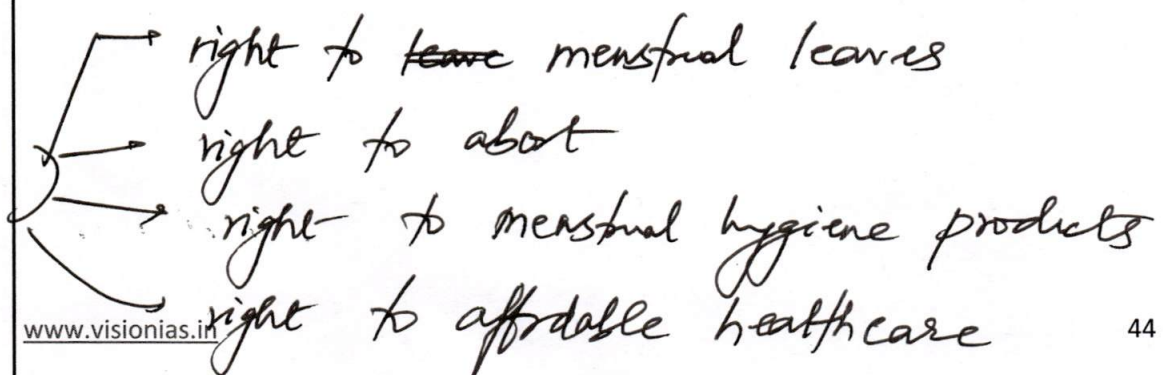 right to leave menstrual leaves
right to abort
right to menstrual hygiene products
right to affordable healthcare
www.visionias.in 44